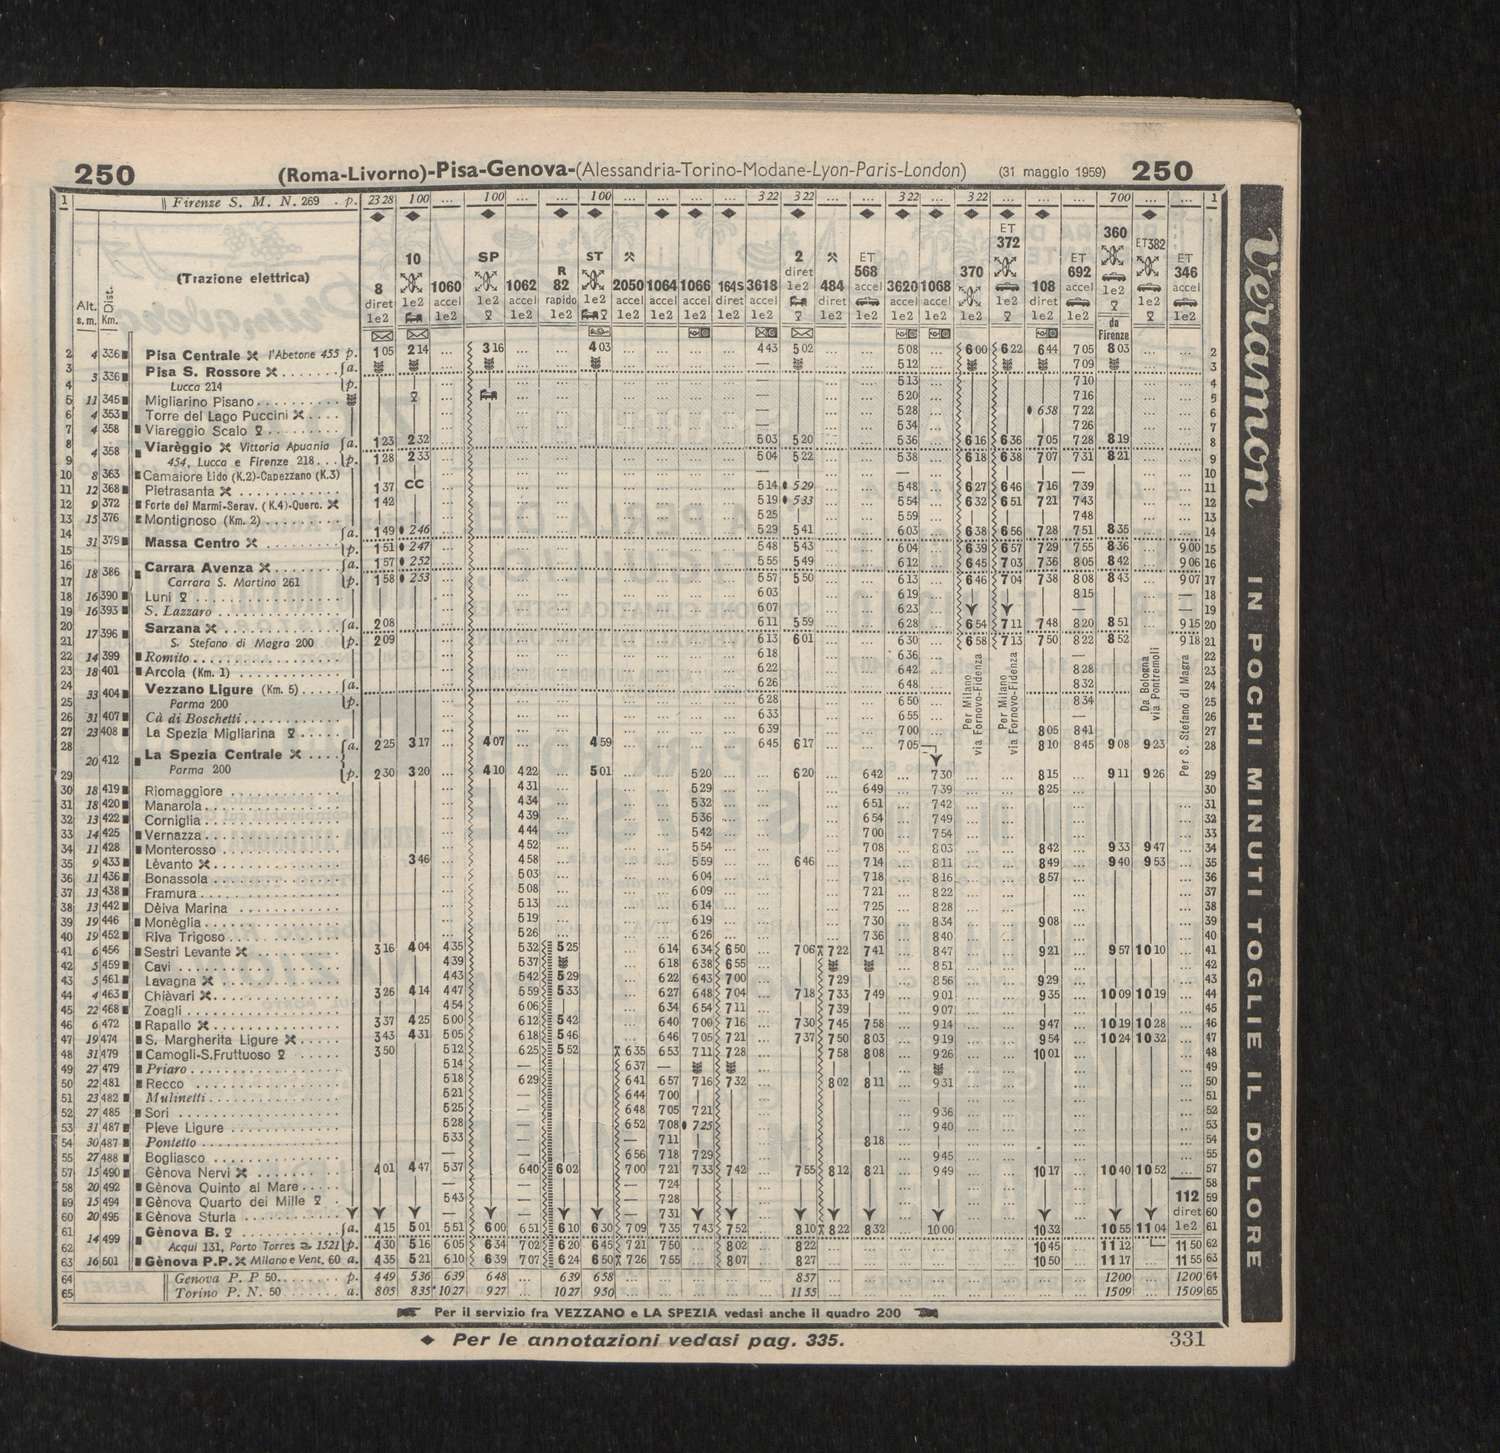 250 (Roma-Livorno)-Pisa-Genova-(Alessandria-Torino-Modane-Lyon-Paris-London) (31 maggio 1959) 250
1 Firenze S. M. N. 269 . p. 23 28 1 00 ... 1 00 ... ... 1 00 ... ... ... ... 3 22 3 22 ... ... 3 22 ... 3 22 ... ... ... 7 00 ... ... 1
ET 372 360 ET382
10 SP ST 2 ET ET ET
(Trazione elettrica)
R diret 568 370 692 1e2 346
8 1e2 1060 1e2 1062 82 1e2 2050 1064 1066 164S 3618 1e2 484 accel 3620 1068 1e2 108 accel accel
diret accel accel rapido accel accel accel diret accel diret accel accel diret
Alt. s.m. Dist. Km. 1e2 1e2 1e2 1e2 1e2 1e2 1e2 1e2 1e2 1e2 1e2 1e2 1e2 1e2 1e2 1e2
da Firenze
2 4 336 Pisa Centrale l'Abetone 455 p. 1 05 2 14 3 16 4 03 4 43 5 02 5 08 6 00 6 22 6 44 7 05 8 03 2
3 3 336 Pisa S. Rossore a. — 5 12 7 09 3
4 Lucca 214 p. — 5 13 7 10 4
5 11 345 Migliarino Pisano — 5 20 7 16 5
6 4 353 Torre del Lago Puccini — 5 28 6 58 7 22 6
7 4 358 Viareggio Scalo — 5 34 7 26 7
8 4 358 Viarèggio Vittoria Apuania a. 1 23 2 32 5 03 5 20 5 36 6 16 6 36 7 05 7 28 8 19 8
9 454, Lucca e Firenze 218 p. 1 28 2 33 5 04 5 22 5 38 6 18 6 38 7 07 7 31 8 21 9
10 8 363 Camaiore Lido (K.2)-Capezzano (K.3) — — — 10
11 12 368 Pietrasanta 1 37 CC 5 14 5 29 5 48 6 27 6 46 7 16 7 39 11
12 9 372 Forte dei Marmi-Serav. (K.4)-Querc. 1 42 5 19 5 33 5 54 6 32 6 51 7 21 7 43 12
13 15 376 Montignoso (Km. 2) 5 25 5 59 7 48 13
14 31 379 Massa Centro a. 1 49 2 46 5 29 5 41 6 03 6 38 6 56 7 28 7 51 8 35 14
15 p. 1 51 2 47 5 48 5 43 6 04 6 39 6 57 7 29 7 55 8 36 9 00 15
16 18 386 Carrara Avenza a. 1 57 2 52 5 55 5 49 6 12 6 45 7 03 7 36 8 05 8 42 9 06 16
17 Carrara S. Martino 261 p. 1 58 2 53 5 57 5 50 6 13 6 46 7 04 7 38 8 08 8 43 9 07 17
18 16 390 Luni 6 03 6 19 8 15 — 18
19 16 393 S. Lazzaro 6 07 6 23 — — 19
20 17 396 Sarzana a. 2 08 6 11 5 59 6 28 6 54 7 11 7 48 8 20 8 51 9 15 20
21 S. Stefano di Magra 200 p. 2 09 6 13 6 01 6 30 6 58 7 13 7 50 8 22 8 52 9 18 21
22 14 399 Romito 6 18 6 36 — 22
23 18 401 Arcola (Km. 1) 6 22 6 42 8 28 23
24 33 404 Vezzano Ligure (Km. 5) a. 6 26 6 48 8 32 24
25 Parma 200 p. 6 28 6 50 8 34 25
26 31 407 Cà di Boschetti 6 33 6 55 — 26
27 23 408 La Spezia Migliarina 6 39 7 00 8 05 8 41 27
28 20 412 La Spezia Centrale a. 2 25 3 17 4 07 4 59 6 45 6 17 7 05 8 10 8 45 9 08 9 23 28
Per Milano via Fornovo-Fidenza
Per Milano via Fornovo-Fidenza
Da Bologna via Pontremoli
Per S. Stefano di Magra
29 Parma 200 p. 2 30 3 20 4 10 4 22 5 01 5 20 6 20 6 42 7 30 8 15 9 11 9 26 29
30 18 419 Riomaggiore 4 31 5 29 6 49 7 39 8 25 30
31 18 420 Manarola 4 34 5 32 6 51 7 42 31
32 13 422 Corniglia 4 39 5 36 6 54 7 49 32
33 14 425 Vernazza 4 44 5 42 7 00 7 54 33
34 11 428 Monterosso 4 52 5 54 7 08 8 03 8 42 9 33 9 47 34
35 9 433 Lèvanto 3 46 4 58 5 59 6 46 7 14 8 11 8 49 9 40 9 53 35
36 11 436 Bonassola 5 03 6 04 7 18 8 16 8 57 36
37 13 438 Framura 5 08 6 09 7 21 8 22 37
38 13 442 Dèiva Marina 5 13 6 14 7 25 8 28 38
39 19 446 Monèglia 5 19 6 19 7 30 8 34 9 08 39
40 19 452 Riva Trigoso 5 26 6 26 7 36 8 40 40
41 6 456 Sestri Levante 3 16 4 04 4 35 5 32 5 25 6 14 6 34 6 50 7 06 7 22 7 41 8 47 9 21 9 57 10 10 41
42 5 459 Cavi 4 39 5 37 6 18 6 38 6 55 8 51 42
43 5 461 Lavagna 4 43 5 42 5 29 6 22 6 43 7 00 7 29 8 56 9 29 43
44 4 463 Chiàvari 3 26 4 14 4 47 5 59 5 33 6 27 6 48 7 04 7 18 7 33 7 49 9 01 9 35 10 09 10 19 44
45 22 468 Zoagli 4 54 6 06 6 34 6 54 7 11 7 39 9 07 45
46 6 472 Rapallo 3 37 4 25 5 00 6 12 5 42 6 40 7 00 7 16 7 30 7 45 7 58 9 14 9 47 10 19 10 28 46
47 19 474 S. Margherita Ligure 3 43 4 31 5 05 6 18 5 46 6 46 7 05 7 21 7 37 7 50 8 03 9 19 9 54 10 24 10 32 47
48 31 479 Camogli-S.Fruttuoso 3 50 5 12 6 25 5 52 6 35 6 53 7 11 7 28 7 58 8 08 9 26 10 01 48
49 27 479 Priaro 5 14 — 6 37 — 49
50 22 481 Recco 5 18 6 29 6 41 6 57 7 16 7 32 8 02 8 11 9 31 50
51 23 482 Mulinetti 5 21 — 6 44 7 00 51
52 27 485 Sori 5 25 — 6 48 7 05 7 21 9 36 52
53 31 487 Pieve Ligure 5 28 — 6 52 7 08 7 25 9 40 53
54 30 487 Pontetto 5 33 — — 7 11 8 18 54
55 27 488 Bogliasco — — 6 56 7 18 7 29 9 45 55
57 15 490 Gènova Nervi 4 01 4 47 5 37 6 40 6 02 7 00 7 21 7 33 7 42 7 55 8 12 8 21 9 49 10 17 10 40 10 52 57
58 20 492 Gènova Quinto al Mare — 7 24 58
59 15 494 Gènova Quarto dei Mille 5 43 7 28 112 59
60 20 495 Gènova Sturla — 7 31 diret 60
61 14 499 Gènova B. a. 4 15 5 01 5 51 6 00 6 51 6 10 6 30 7 09 7 35 7 43 7 52 8 10 8 22 8 32 10 00 10 32 10 55 11 04 1e2 61
62 Acqui 131, Porto Torres 1521 p. 4 30 5 16 6 05 6 34 7 02 6 20 6 45 7 21 7 50 8 02 8 22 10 45 11 12 11 50 62
63 16 501 Gènova P.P. Milano e Vent. 60 a. 4 35 5 21 6 10 6 39 7 07 6 24 6 50 7 26 7 55 8 07 8 27 10 50 11 17 11 55 63
64 Genova P. P 50 p. 4 49 5 36 6 39 6 48 6 39 6 58 8 37 12 00 12 00 64
65 Torino P. N. 50 a. 8 05 8 35 10 27 9 27 10 27 9 50 11 55 15 09 15 09 65
Per il servizio fra VEZZANO e LA SPEZIA vedasi anche il quadro 200
Per le annotazioni vedasi pag. 335. 331
Veramon IN POCHI MINUTI TOGLIE IL DOLORE